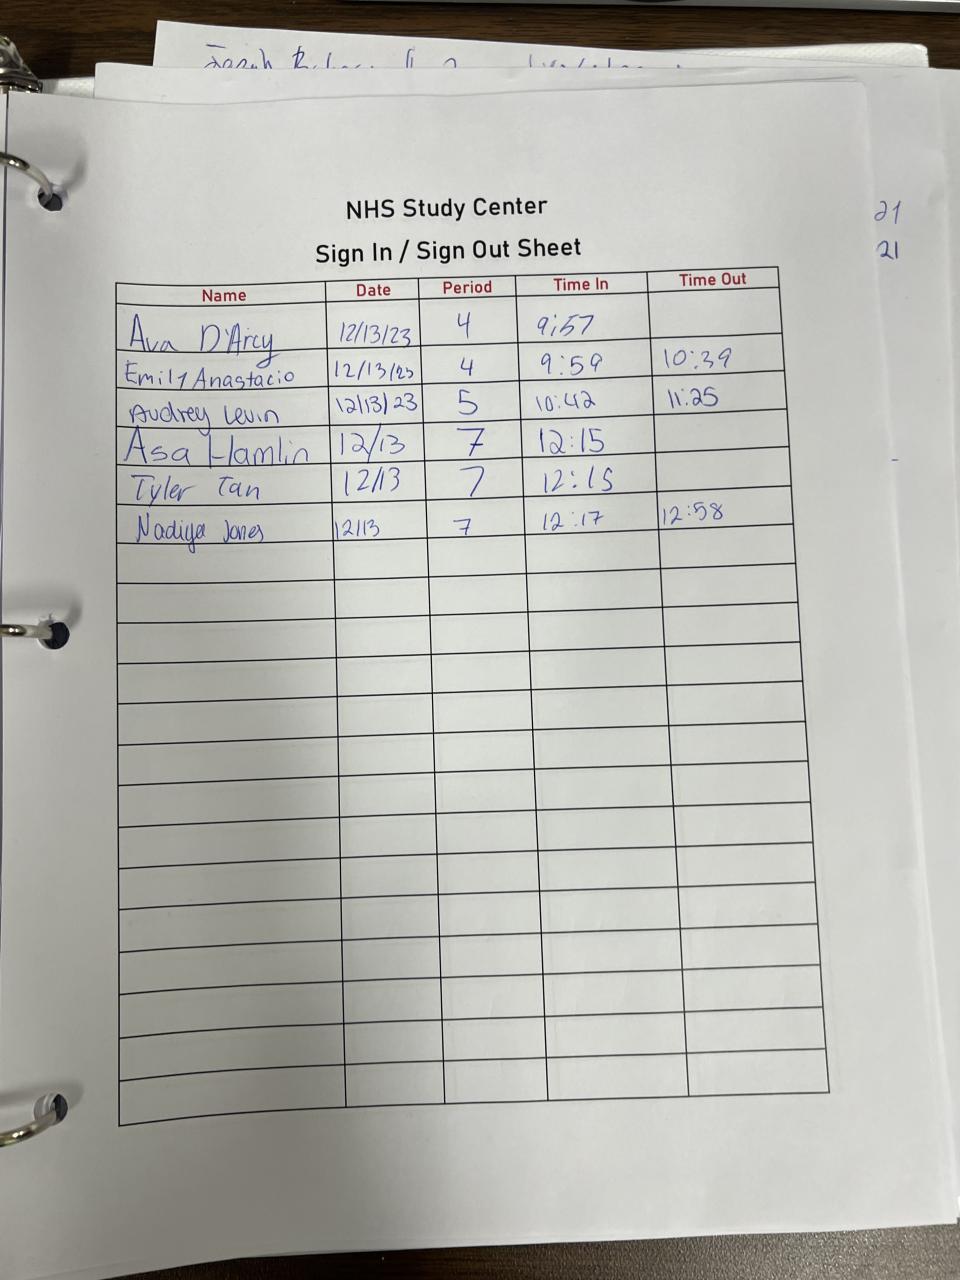 Sarah
21
NHS Study Center
Sign In / Sign Out Sheet
21
Name Date Period Time In Time Out
Ava D'Arcy 12/13/23 4 9:57
Emily Anastacio 12/13/23 4 9:59 10:39
Audrey Levin 12/13/23 5 10:42 11:25
Asa Hamlin 12/13 7 12:15
Tyler Tan 12/13 7 12:15
Nadiya Jones 12/13 7 12:17 12:58